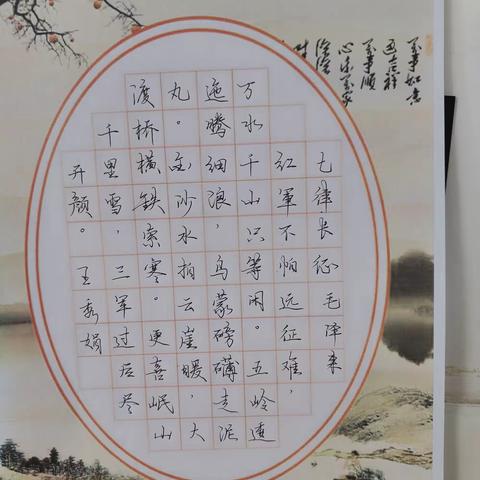 萬事如意
七律长征毛泽东
红軍不怕远征难，
万水千山只等闲。五岭逶
迤腾细浪，乌蒙磅礴走泥
丸。金沙水拍云崖暖，大
渡桥横铁索寒。更喜岷山
千里雪，三军过后尽
开颜。王秀娟